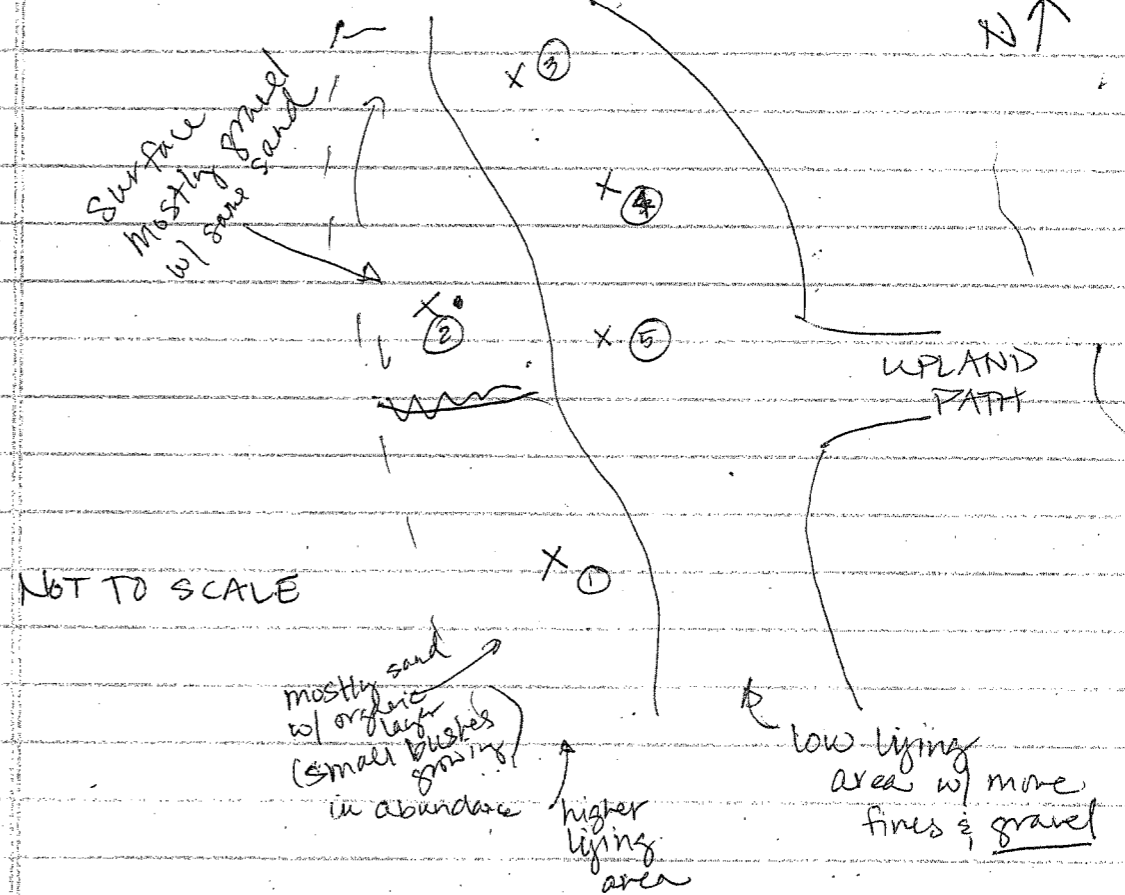 N
3
Surface
mostly gravel
w/ some sand
4
2
5
UPLAND
PATH
1
NOT TO SCALE
mostly sand
w/ organic
layer
(small bushes
growing
in abundance
higher
lying
area
low lying
area w/ more
fines & gravel